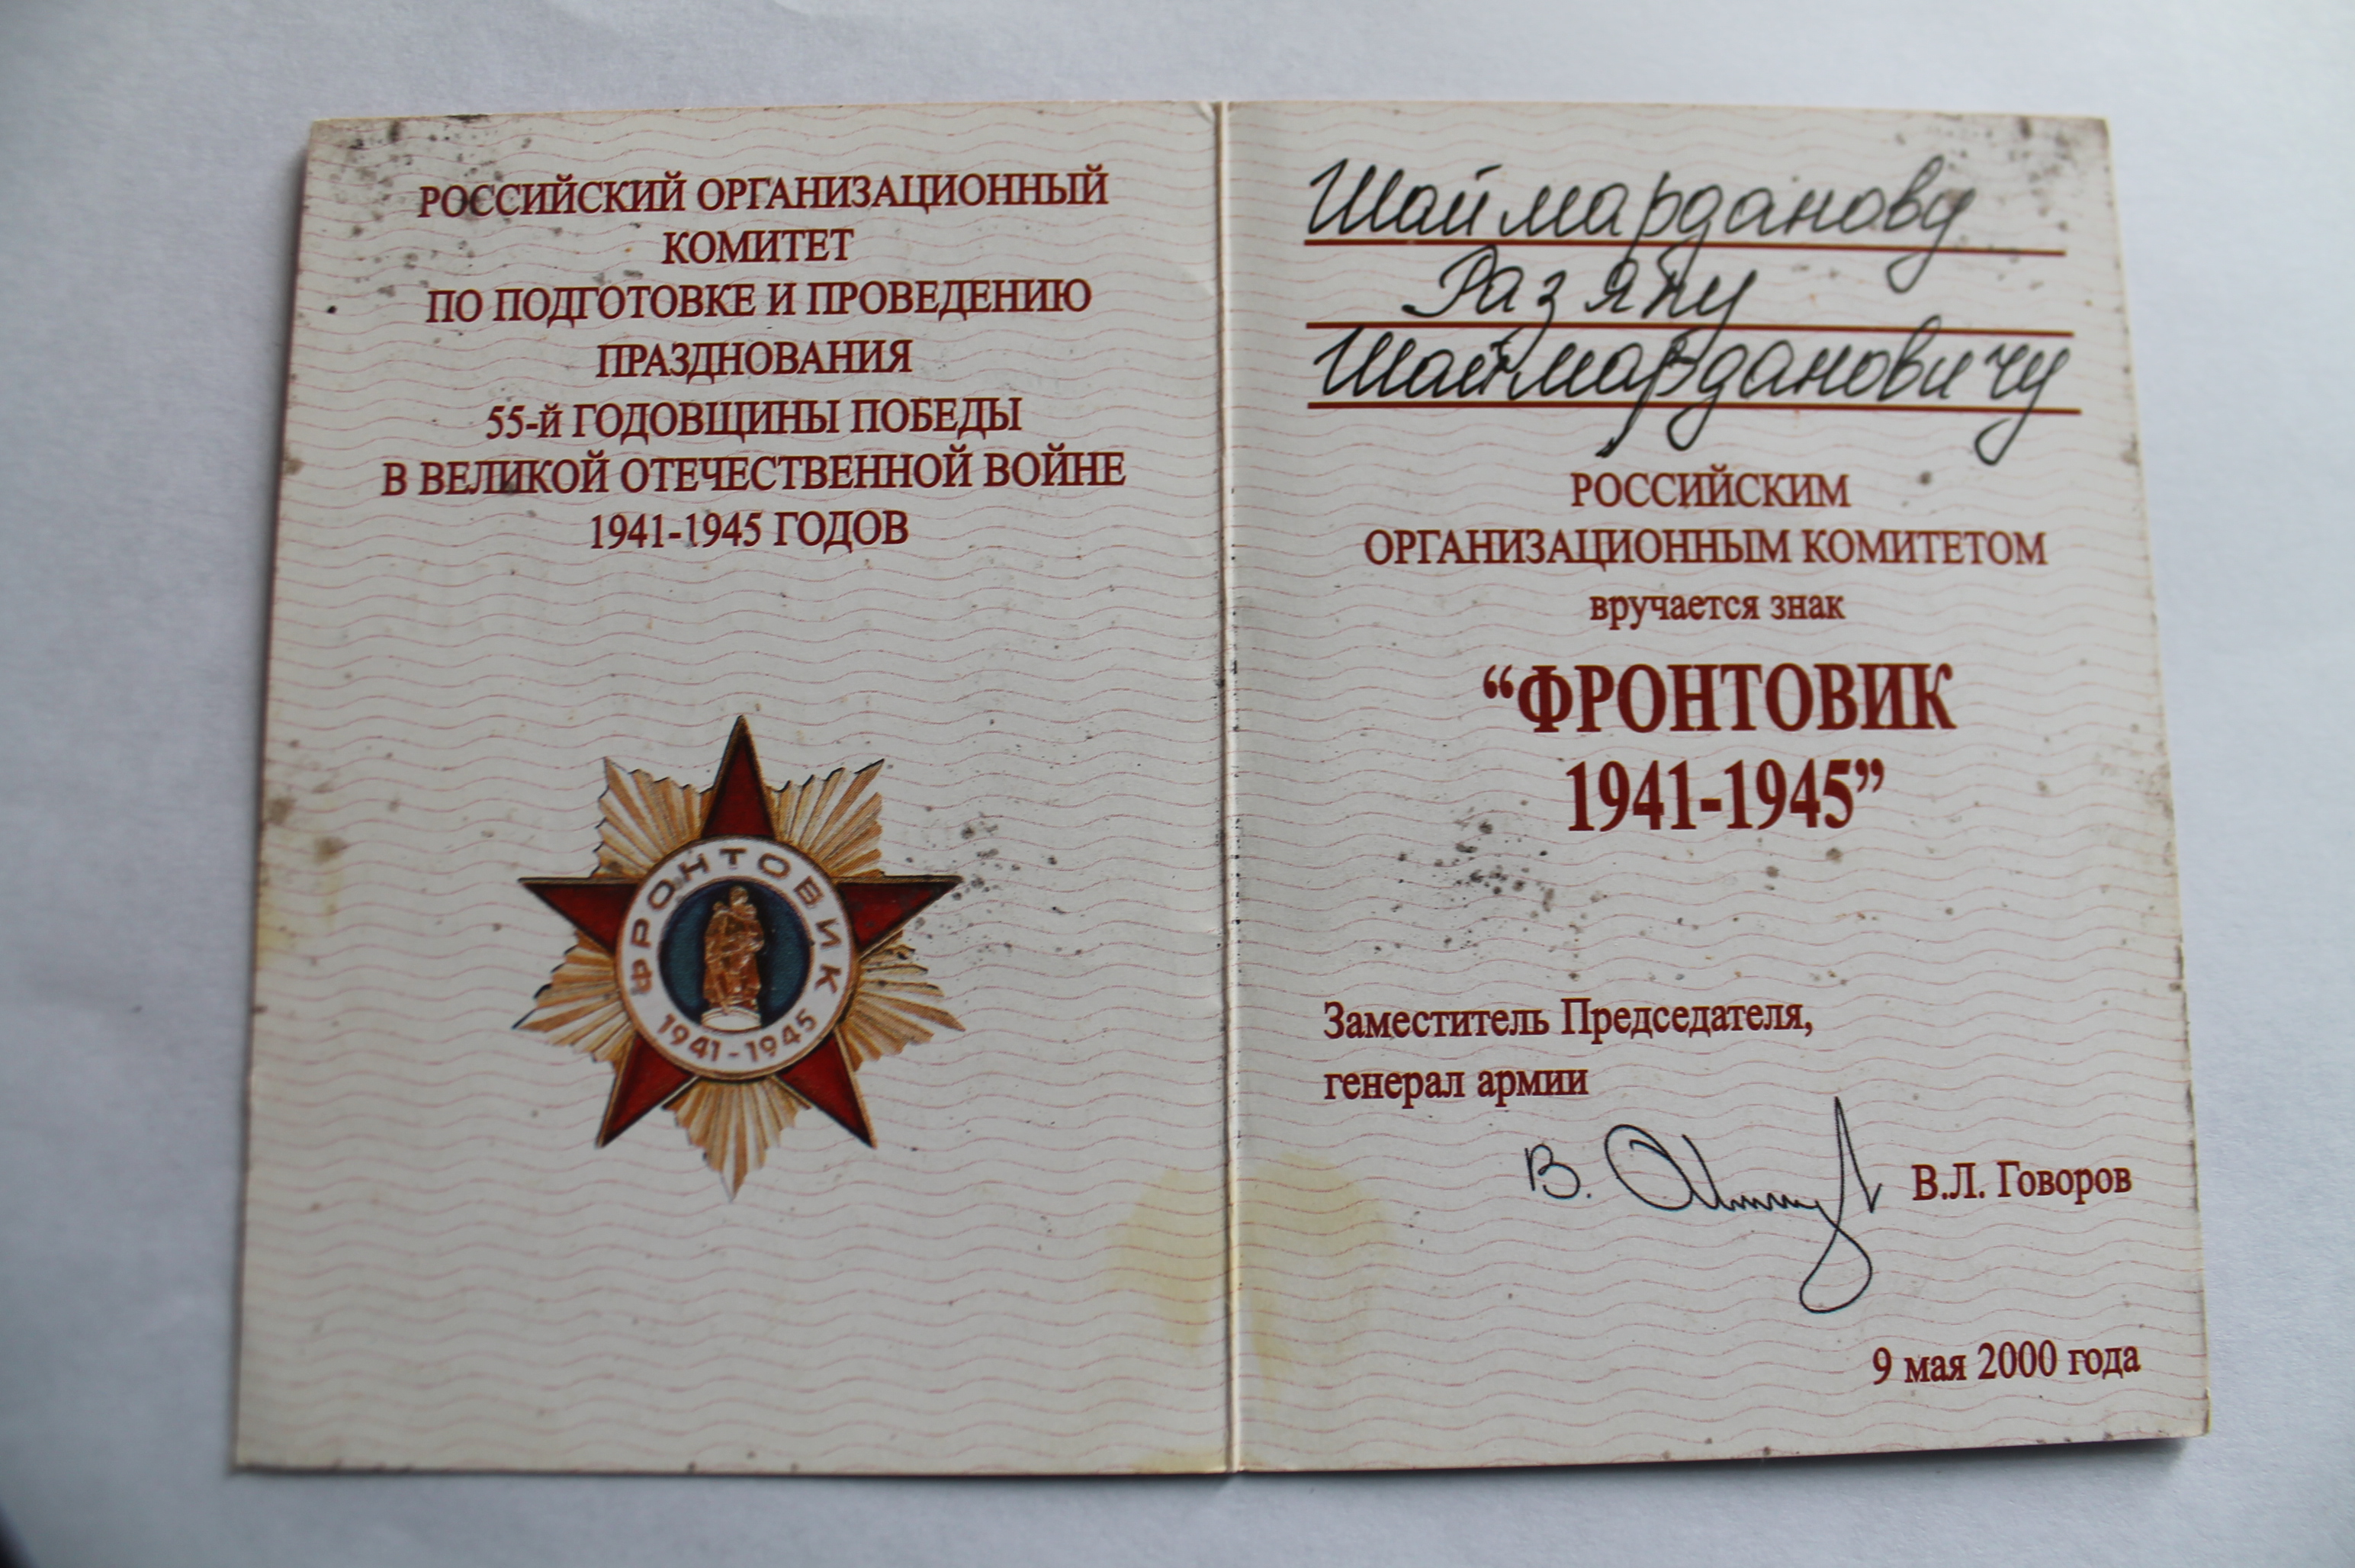 РОССИЙСКИЙ ОРГАНИЗАЦИОННЫЙ
КОМИТЕТ
ПО ПОДГОТОВКЕ И ПРОВЕДЕНИЮ
ПРАЗДНОВАНИЯ
55-й ГОДОВЩИНЫ ПОБЕДЫ
В ВЕЛИКОЙ ОТЕЧЕСТВЕННОЙ ВОЙНЕ
1941-1945 ГОДОВ
ФРОНТОВИК
1941-1945
Шаймарданову
Разяпу
Шаймардановичу
РОССИЙСКИМ
ОРГАНИЗАЦИОННЫМ КОМИТЕТОМ
вручается знак
“ФРОНТОВИК
1941-1945”
Заместитель Председателя,
генерал армии
В.Л. Говоров
9 мая 2000 года